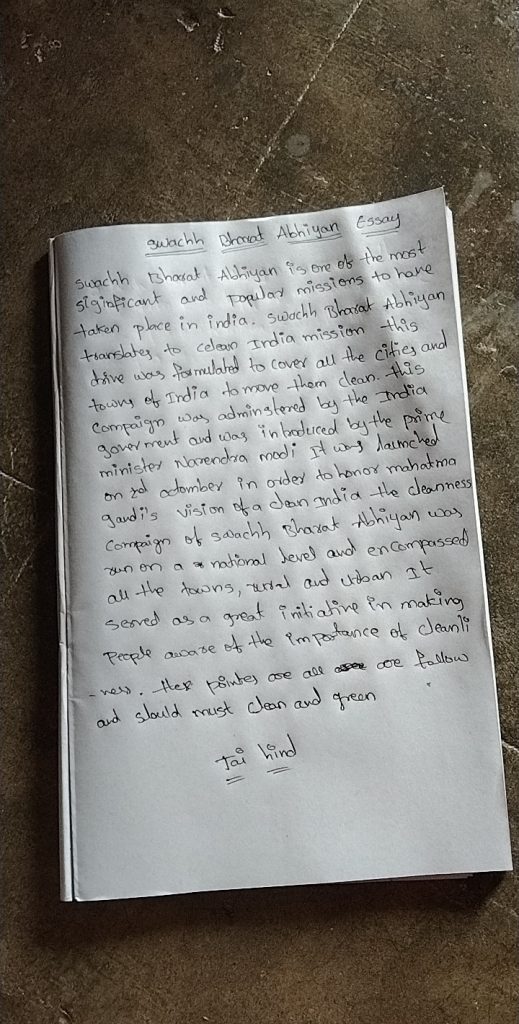 Swachh Bharat Abhiyan Essay
swachh Bharat Abhiyan is one of the most
siginficant and popular missions to have
taken place in india. Swachh Bharat Abhiyan
translates to celean India mission this
drive was formulated to cover all the cities and
towns of India to move them clean. this
Compaign was adminstered by the India
goverment and was introduced by the prime
minister Narendra modi It was launched
on 2d octomber in order to honor mahatma
gandi's vision of a clean India the cleanness
Compaign of swachh Bharat Abhiyan was
run on a national level and encompassed
all the towns, rural and urban It
served as a great initiative in making
People aware of the importance of cleanli
-ness. these pointes are all are follow
and should must clean and green
Jai hind